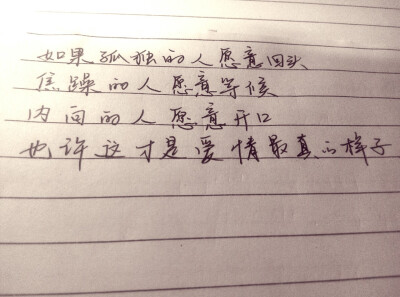 如果孤独的人愿意回头
焦躁的人愿意等候
内向的人愿意开口
也许这才是爱情最真的样子